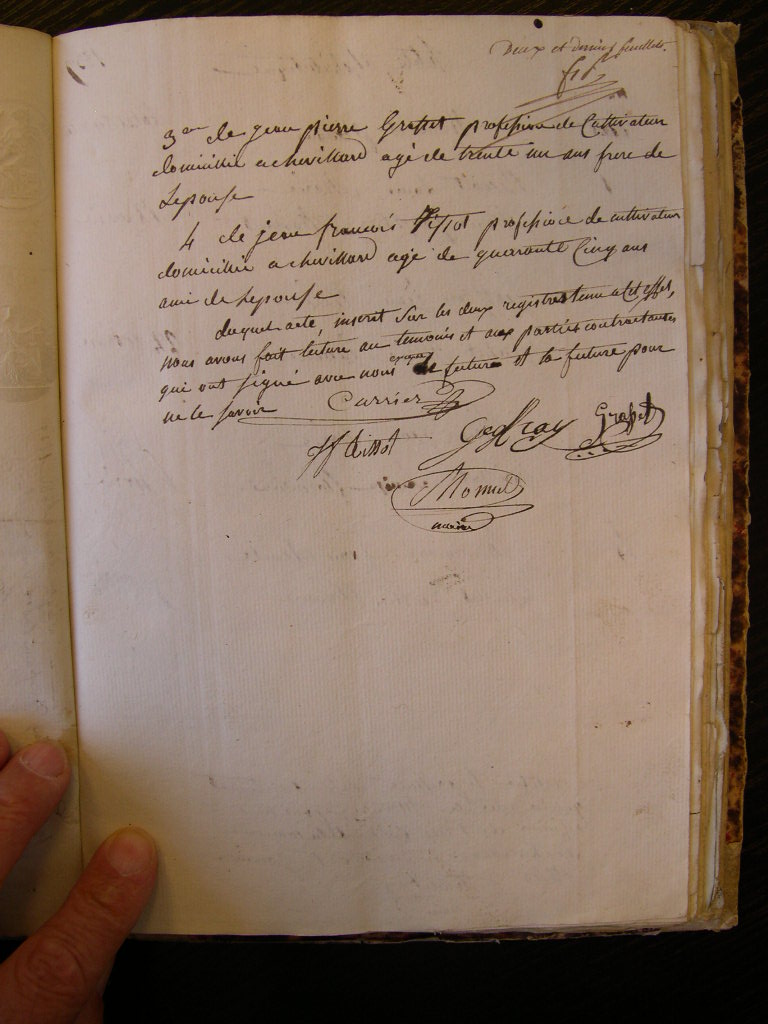 Deux et dernier feuillets.
3em de jean pierre Grasset profession de Cultivateur
domicillié a chevillard agé de trente un ans frere de
Lepouse
4 de jean francois Tissot profession de cultivateur
domicillié a chevillard agé de quarante Cinq ans
ami de Lepouse
duquel acte, inscrit sur les deux registres tenu a Cet effet,
nous avons fait lecture au temoins et aux parties contractantes
qui ont signé avec nous futur et la future pour
ne le savoir
Carrier
Jf tissot Grasset
maire